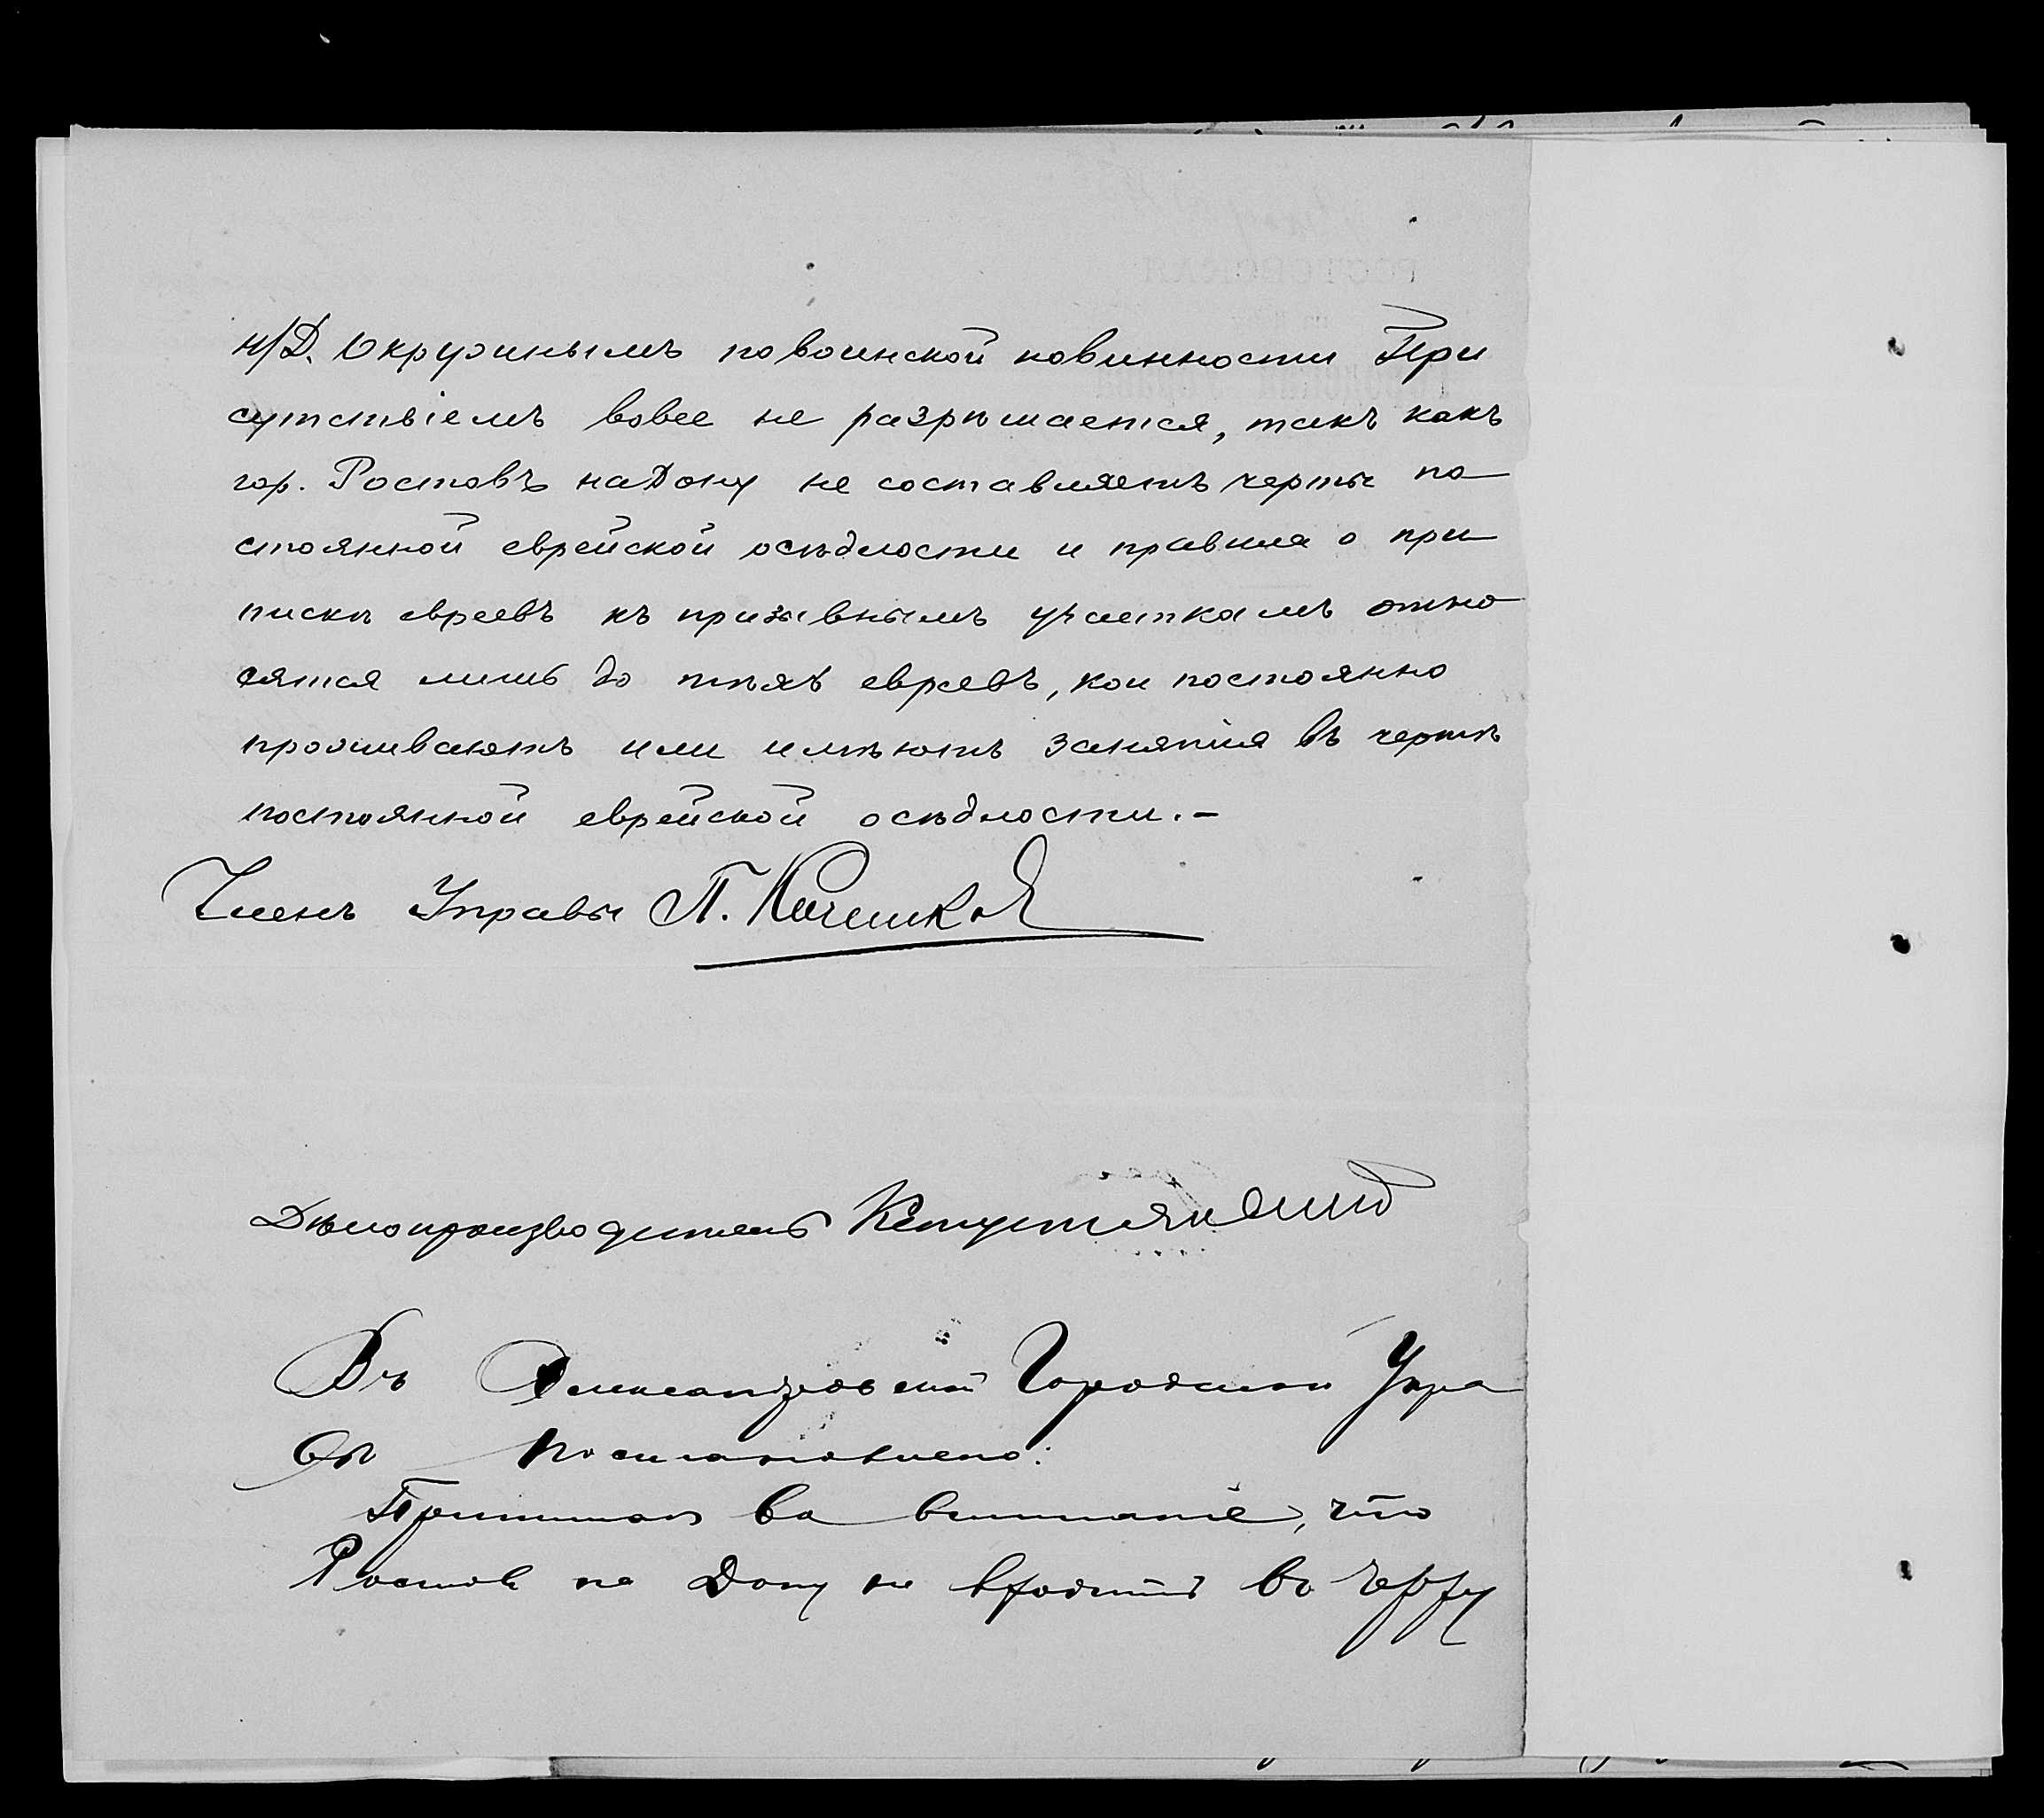 н/Д. Окружнымъ по воинской повинности При
сутствіемъ вовсе не разрѣшается, такъ какъ
гор. Ростовъ на Дону не составляетъ черты по
стоянной еврейской осѣдлости и правила о при
пискѣ евреевъ къ призывнымъ участкамъ отно
сятся лишь до тѣхъ евреевъ, кои постоянно
проживаютъ или имѣютъ занятія въ чертѣ
постоянной еврейской осѣдлости.-
Членъ Управы П.
Дѣлопроизводитель
Въ Александровской Городской Упра
вѣ Постановлено:
Принимая во вниманіе, что
Ростов на Дону не входитъ въ черту